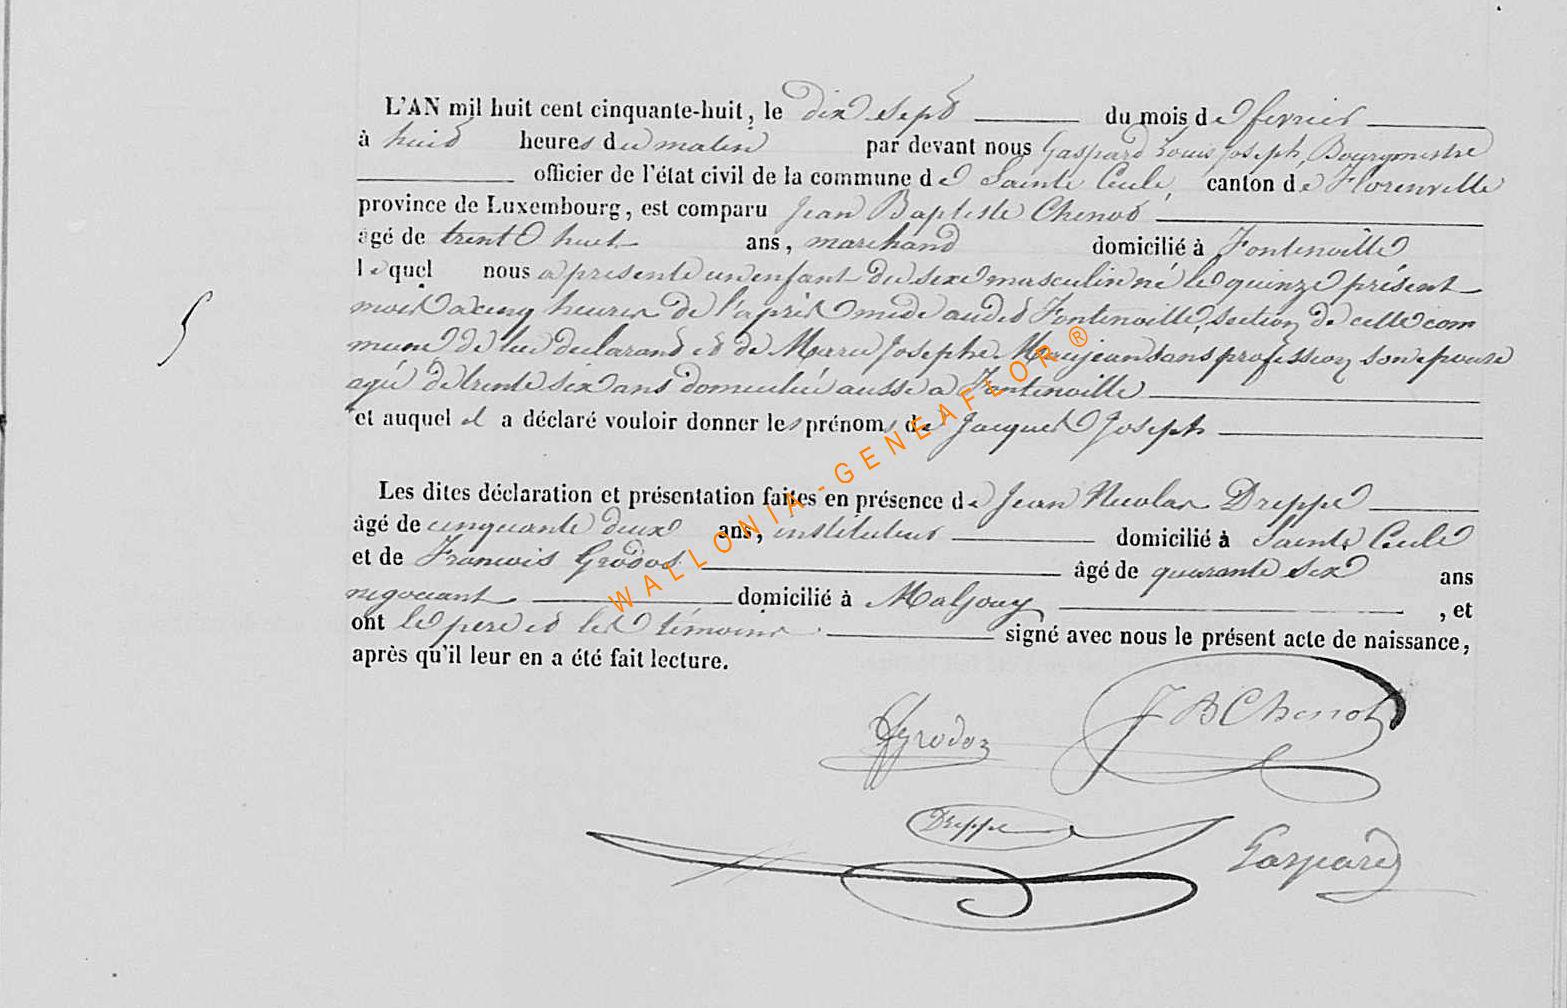 L'AN mil huit cent cinquante-huit, le dix sept du mois de fevrier
à huit heures du matin par devant nous Gaspard Louis Joseph, Bourgmestre
officier de l'état civil de la commune de Sainte Cecile, canton de Florenville
province de Luxembourg, est comparu Jean Baptiste Chenot
âgé de trent huit ans, marchand domicilié à Fontenoille
lequel nous a presente un enfant du sexe masculin né le quinze présent
mois a cinq heures de l'après mide audit Fontenoille, section de cette com
mune de lui declarant et de Marie Josephe Maujean sans profession son epouse
agée de trente six ans domiciliée aussi a Fontenoille
et auquel il a déclaré vouloir donner les prénoms de Jacques Joseph
Les dites déclaration et présentation faites en présence de Jean Nicolas Dreppe
âgé de cinquante deux ans, instituteur domicilié à Sainte Cecile
et de Francois Grodos âgé de quarante six ans
negociant domicilié à , et
ont le pere et les témoins signé avec nous le présent acte de naissance,
après qu'il leur en a été fait lecture.
5
JB Chenot
fgrodos
Dreppe
Gaspard
WALLONIA-GENEAFLOR ®